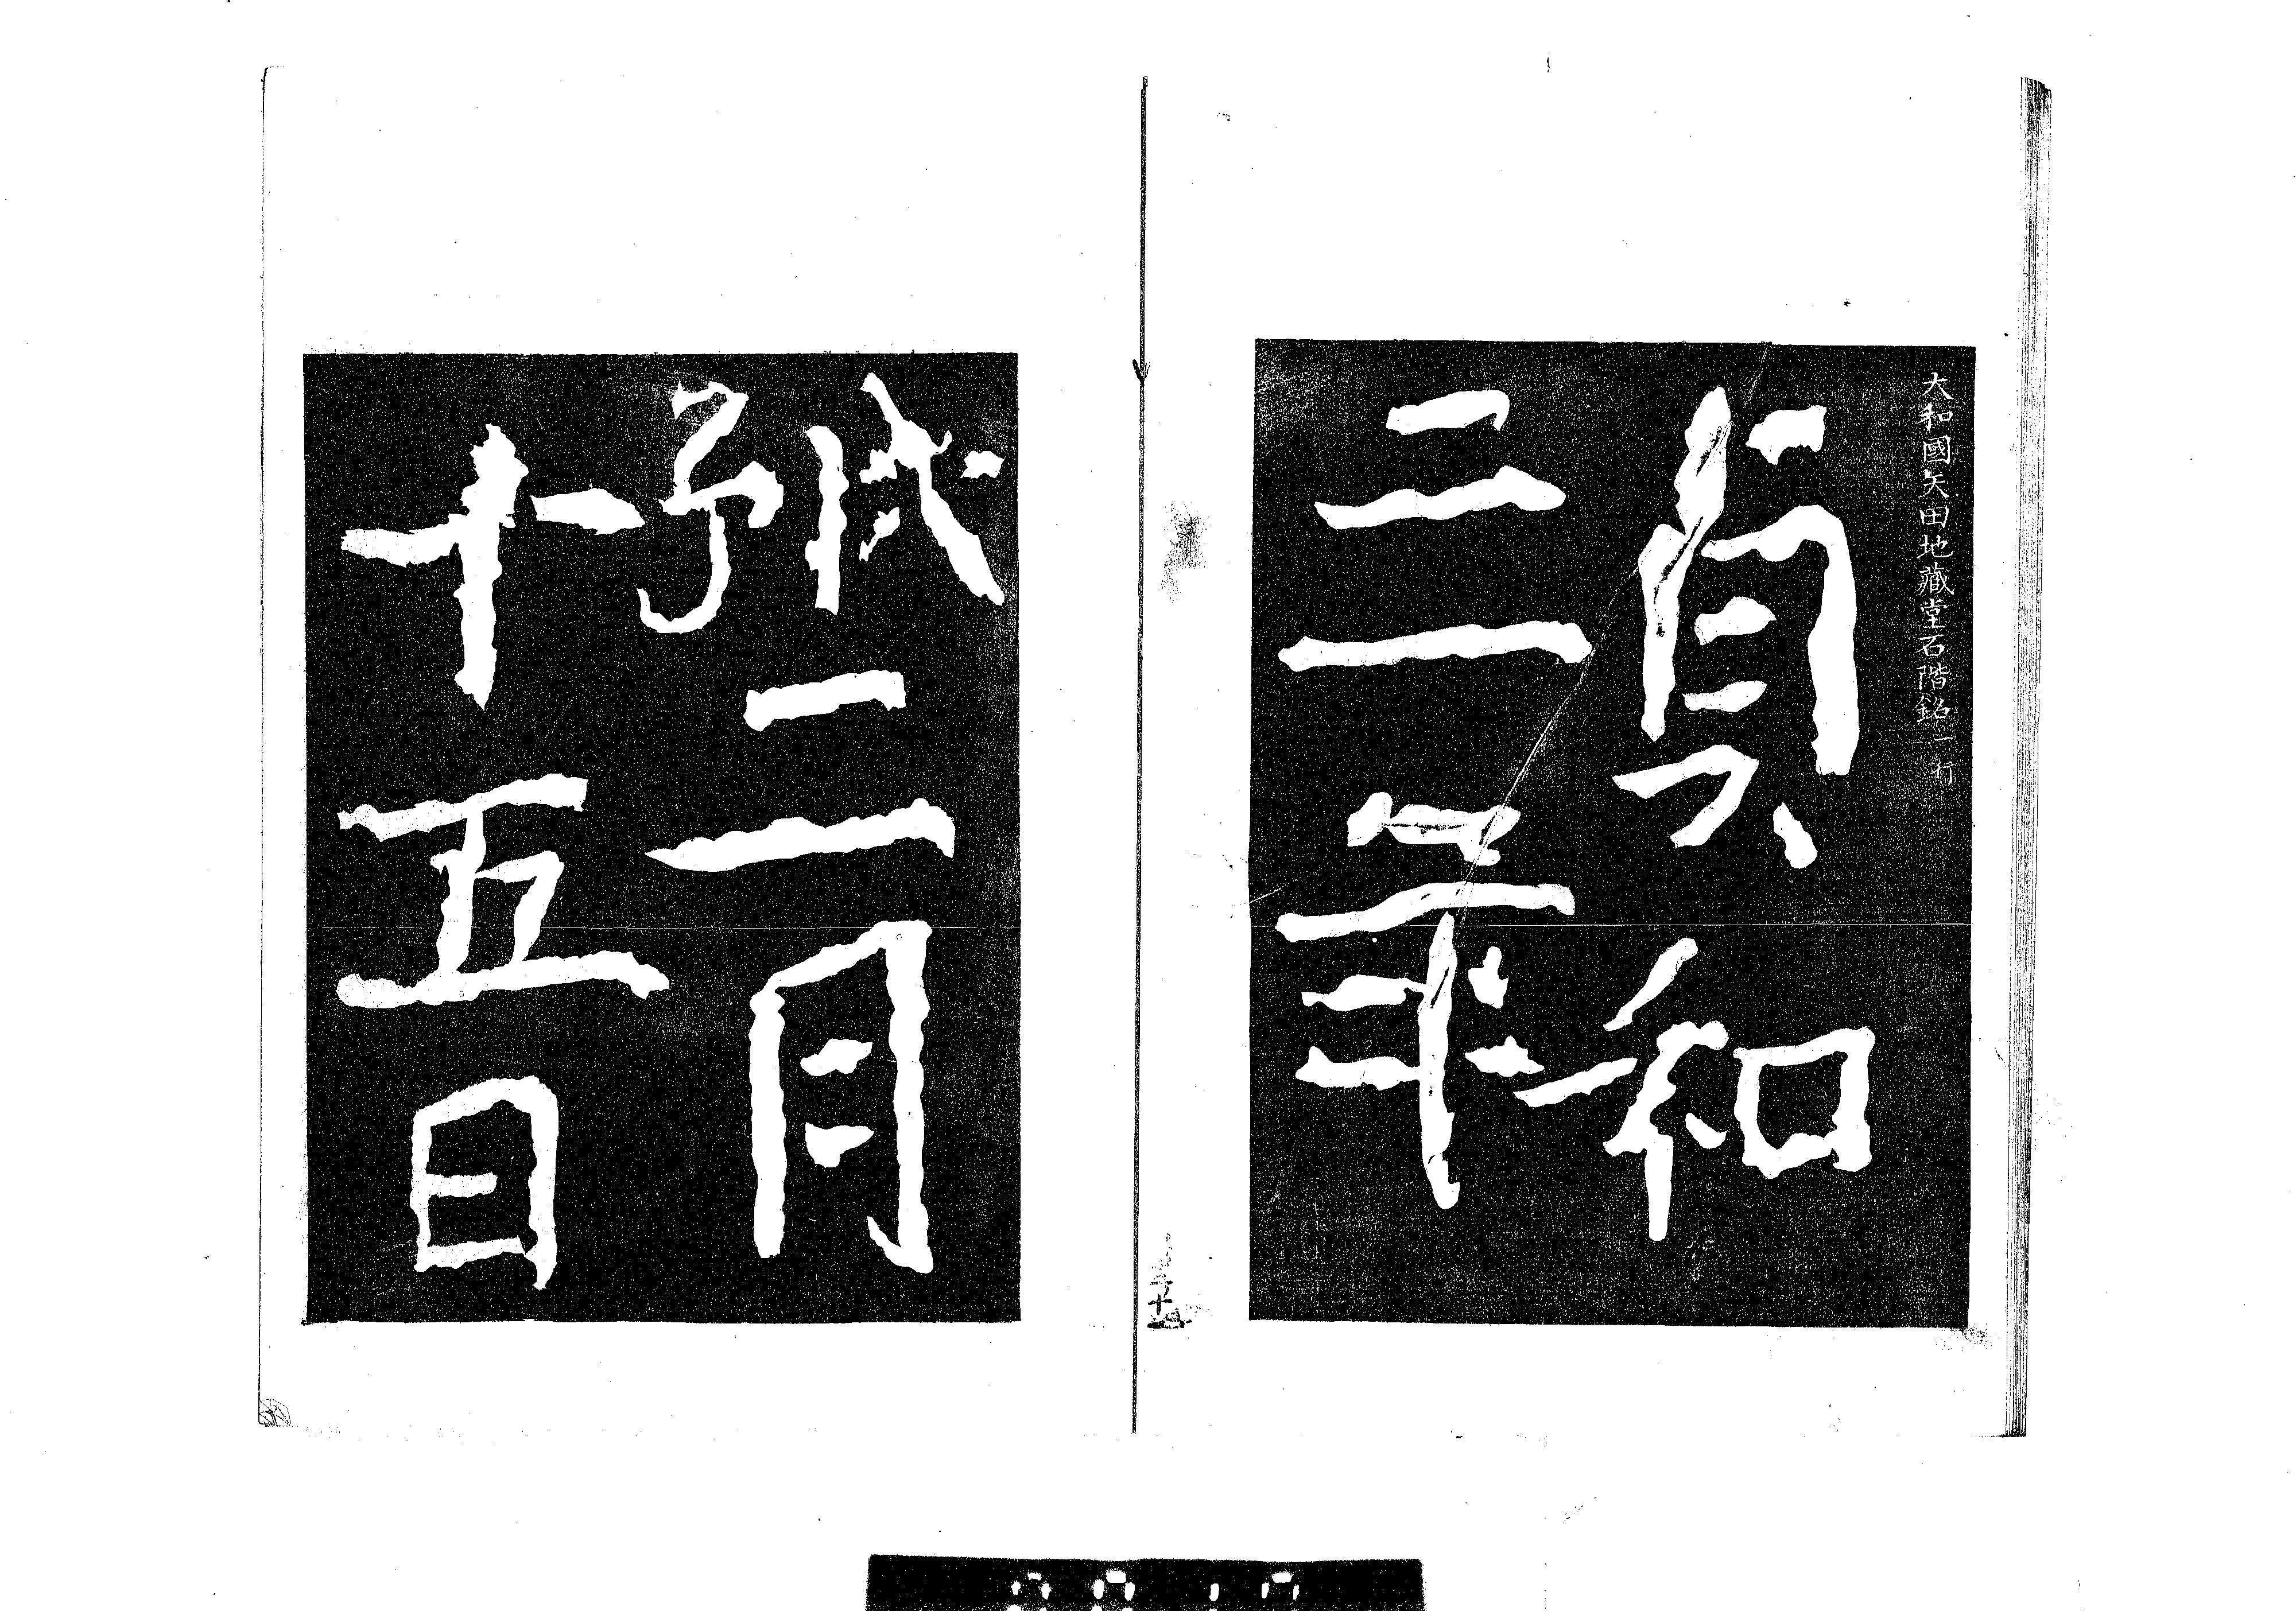 大和國矢田地藏堂石階銘 一行
貞和
三年
戊子二月
十五日